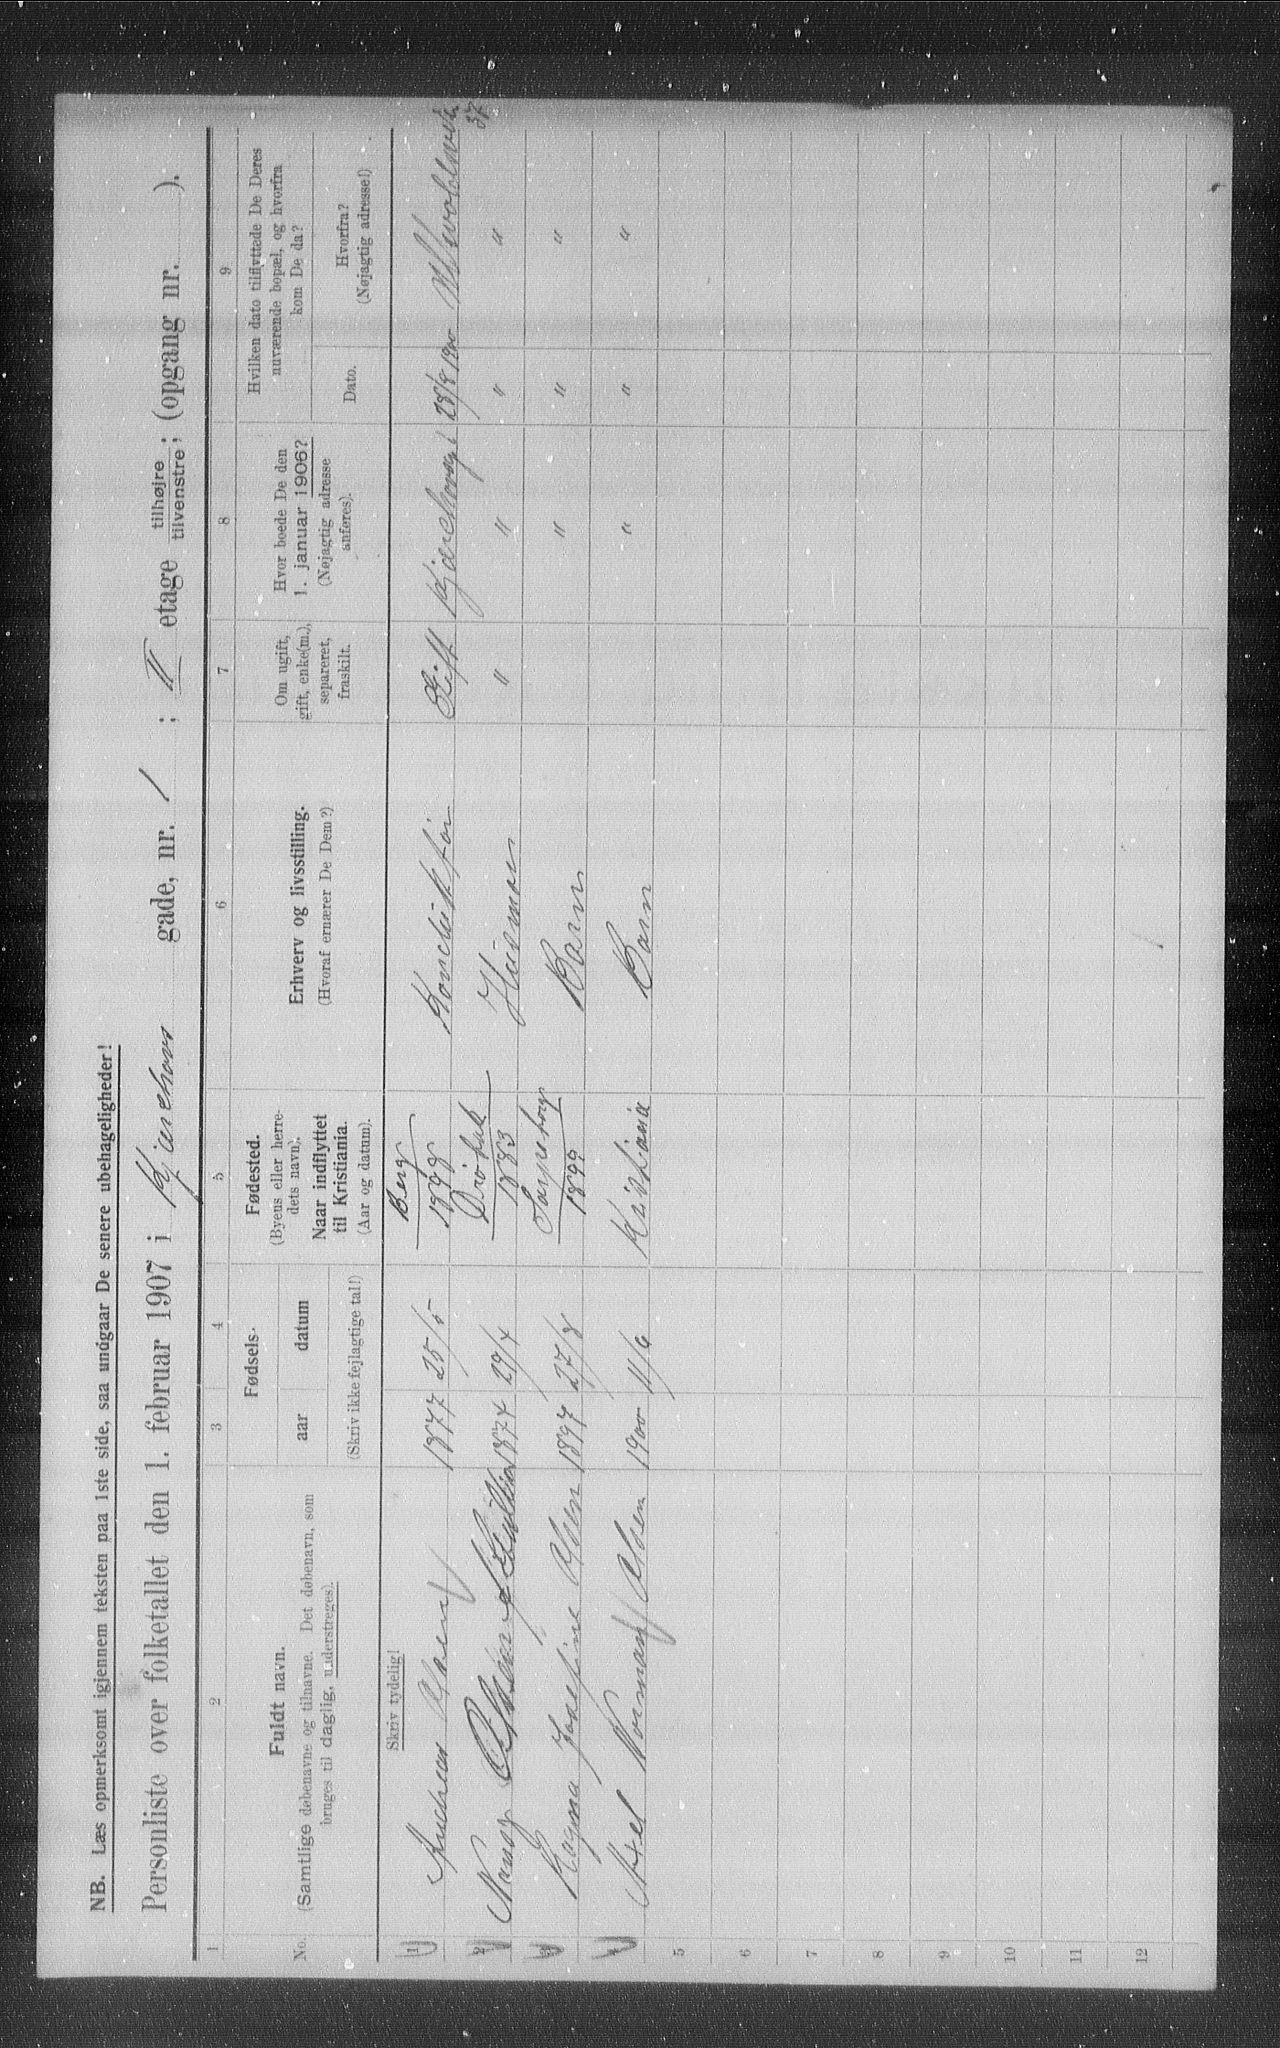 NB. Læs opmerksomt igjennem teksten paa 1ste side, saa undgaar De senere ubehageligheder!
Personliste over folketallet den 1. februar 1907 i Kjærehavs gade, nr. 1 ; II etage tilhøjre tilvenstre ; (opgang nr. ).
1 2 3 4 5 6 7 8 9
No.
Fuldt navn.
(Samtlige døbenavne og tilnavne. Det døbenavn, som
bruges til daglig, understreges).
Fødsels-
aar datum
(Skriv ikke fejlagtige tal!)
Fødested.
(Byens eller herre-
dets navn).
Naar indflyttet
til Kristiania.
(Aar og datum).
Erhverv og livsstilling.
(Hvoraf ernærer De Dem?)
Om ugift,
gift, enke(m.),
separeret,
fraskilt.
Hvor boede De den
1. januar 1906?
(Nøjagtig adresse
anføres).
Hvilken dato tilflyttede De Deres
nuværende bopæl, og hvorfra
kom De da?
Dato.
Hvorfra?
(Nøjagtig adresse!)
Skriv tydelig!
1 Andreas Olsen 1877 25/5 Berg 1898 Konduktør Gift 1 28/8 1900 37
2 1874 29/4 Drøbak 1883 Husmor " " " "
3 Ragna Josefine Olsen 1897 27/8 Sarpsborg 1899 Barn " " "
4 Axel Norman Olsen 1900 11/6 Kristiania Barn " " "
5
6
7
8
9
10
11
12